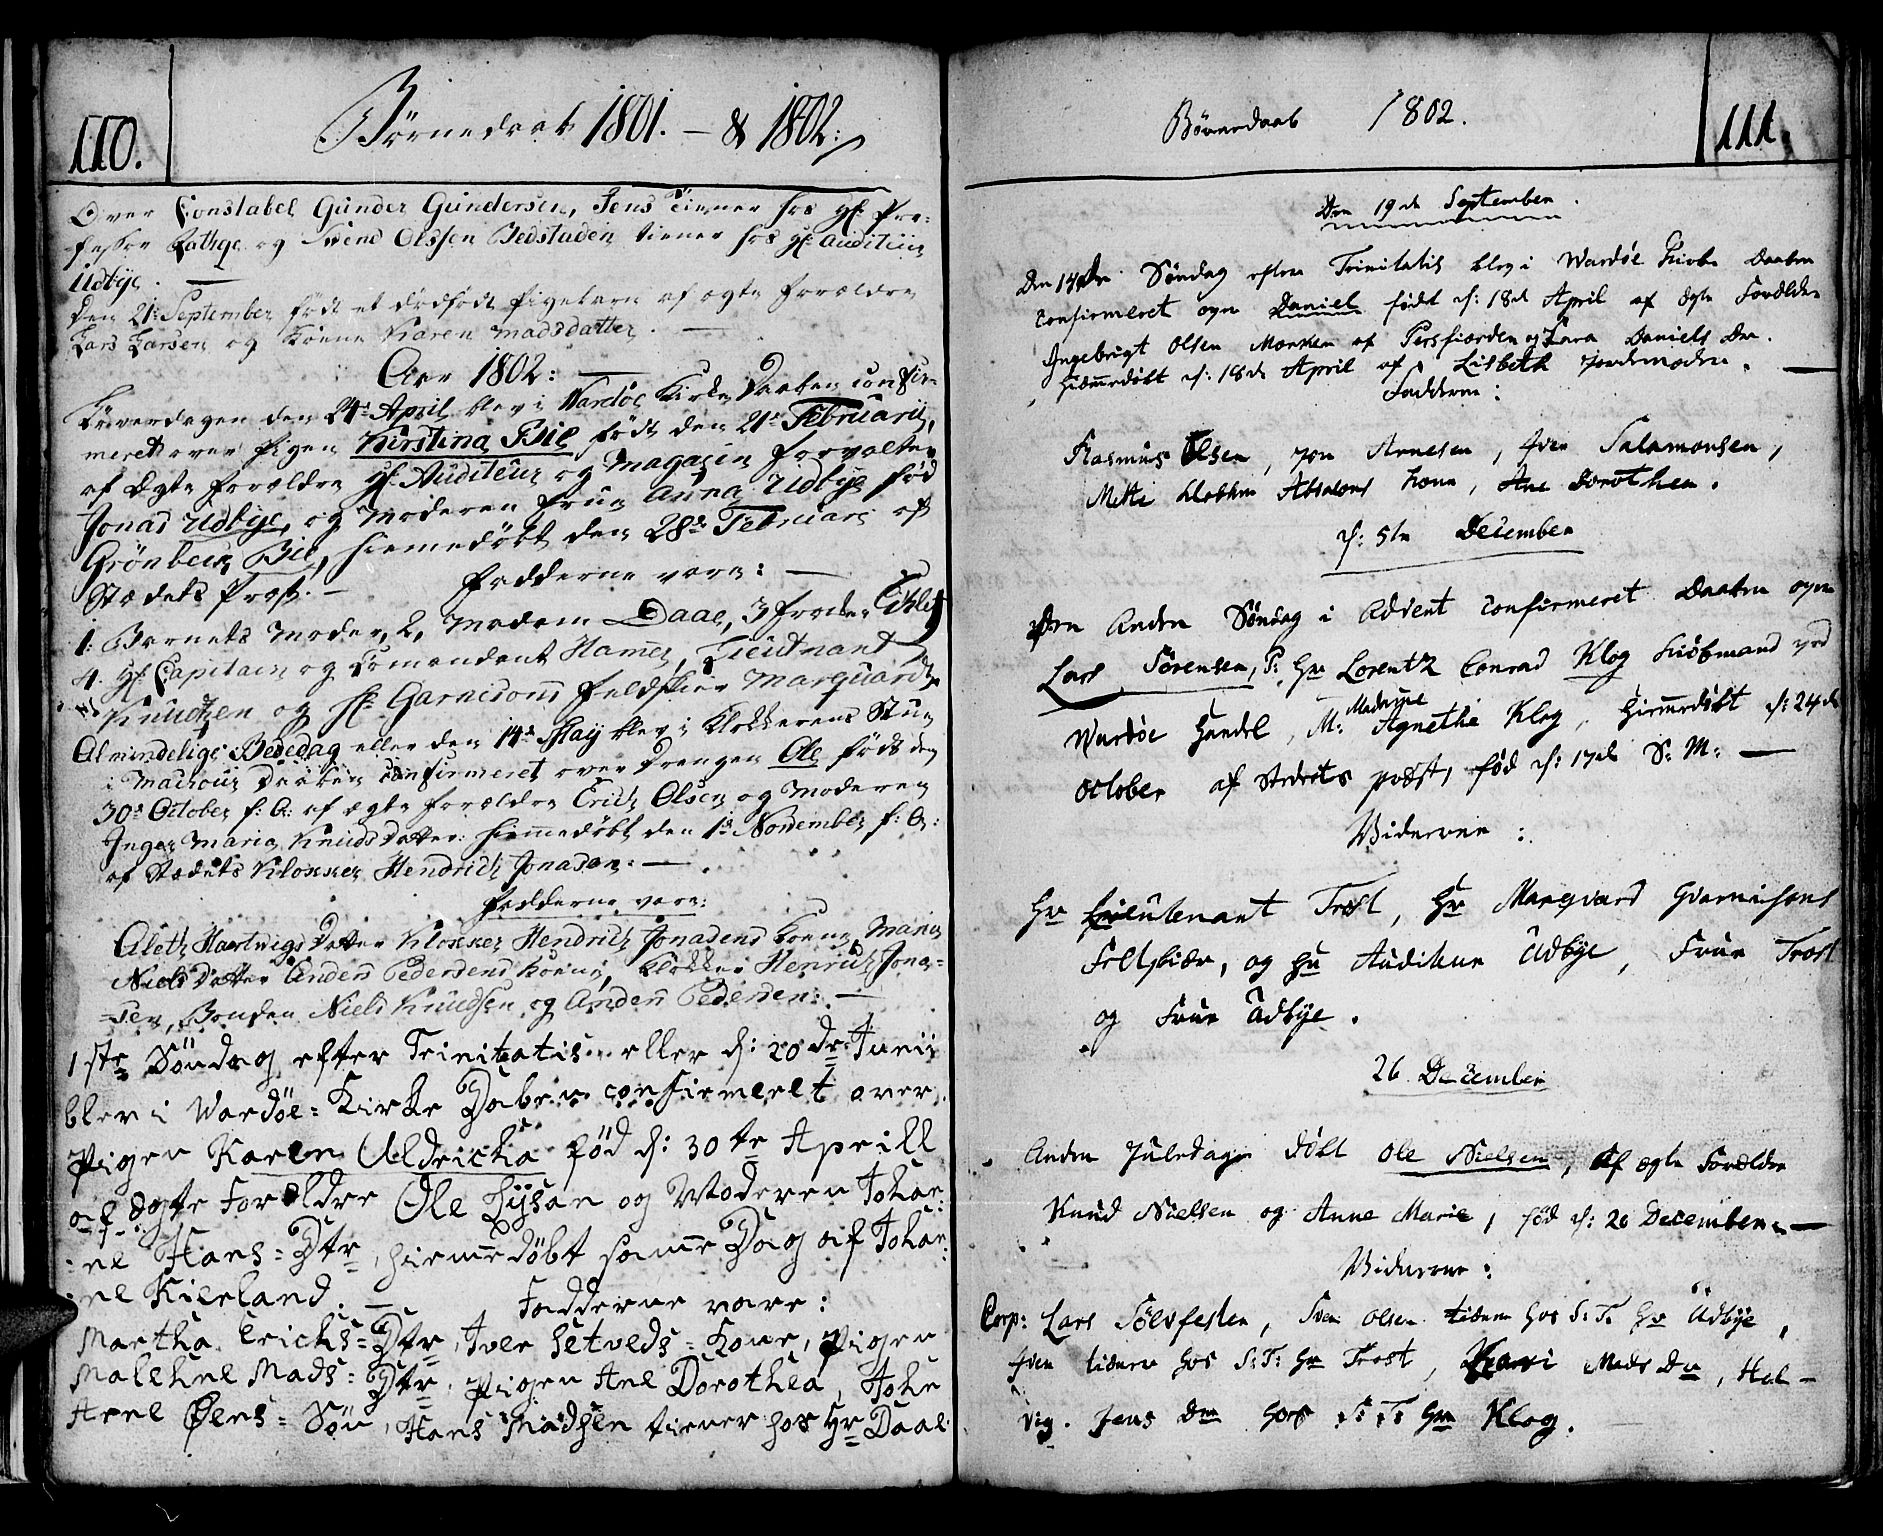 110.
Børnedaab 1801. — & 1802:
Over Constabel Gunder Gundersen, Jens tiener hos Hr. Pro-
fessor Rathge og Svend Olssen Bedstuden tiener hos Hr. Auditeur
Udbye. —
Den 21: September født et dødfødt Pigebarn af ægte Forældre
Lars Larsen og Konen Karen Madsdatter. —
Aar 1802: —
Løverdagen den 24de April blev i Wardøe Kirke Daaben confir-
meret over Pigen Kirstina Bie født den 21de Februarii,
af Ægte Forældre Hr. Auditeur og Magazin Forvalter
Jonas Udbye, og Moderen Frue Anna Udbye fød
Grönbeck Bie, hiemedøbt den 28de Februari af
Stædets Præst. —
Fadderne vare: —
1: Barnets Moder, 2, Madam Daae, 3 Frøken
4. Hr. Capitain og Comendant Hamer, Lieutnant
Knudtzen og Hr. Garnisons Feldskier Marquardt
Almindelige Bededag eller den 14de May blev i Klokkerens Stue
i Makour Daaben confirmeret over Drengen Ole født den
30te October f: A: af ægte Forældre Erich Olsen og Moderen
Inger Maria Knuds Datter: hiemmedøbt den 1te November f: A:
af Stædets Klokker Hendrich Jonasen: — .
Fadderne vare:
Aleth Hartwigs Datter Klokker Hendrich Jonasens Kone, Maria
Niels Datter Anders Pedersens Kone, Klokker Henrich Jona-
-sen, Bonden Niels Knudsen og Anders Pedersen: —
1ste Söndag efter Trinitatis eller d: 20de Junii
blev i Wardöe= Kirke Daben confirmeret over
Pigen Karen Uldricka fød d: 30te Aprill
af ægte Forældre Ole Lysan og Moderen Johan-
-ne Hans= Dtr, hiemedøbt samme Dag af Johan-
-ne Kierland. —
Fadderne vare:
Martha Erichs= Dtr, Iver Setveds= Kone, Pigen
Malehne Mads= Dtr, Pigen Ane Dorothea, John
Arne Øens= Sön, Hans Madsen tiener hos Hr Daae
Børnedaab 1802.
111.
Den 19de September.
Den 14de Söndag efter Trinitatis blev i Wardøe Kirke Daaben
confirmeret over Daniel født d: 18de April af Ægte Forældre
Ingebrigt Olsen Morken af Persfiorden og Zara Daniels Dtr.
hiemmedøbt d: 18de April af Lisbeth Jordemoder. —
Fadderne:
Rasmus Olsen, Jon Arnesen, Iver Salamonsen,
Mette Absalons Kone, Ane Dorothea.
d: 5te December
Den Anden Söndag i Advent confirmeret Daaben over
Lars Sörensen, F: Hr Lorentz Conrad Klog Kiöbmand ved
Wardöe Handel, M: Madame Agnethe Klog, hiemmedöbt d: 24de
October af Stedets præst, fød d: 17de S: M: —
Vidnerne:
Hr Lieutenant Trost, Hr Marqvard Guarnisons
Feltskiær, og Hr Auditeur Udbye, Frue Trost
og Frue Udbye.
26. December
Anden Juledag döbt Ole Nielsen, af ægte Forældre
Knud Nielsen og Anne Marie, fød d: 20 December. —
Vidnerne:
Corp: Lars Sölvfesten, Sven Olsen tiener hos S: T. Hr Udbye,
Iver tiener hos S: T: Hr Trost, Kari Mads Dtr, Hel-
vig. Jens Dtr hos S: T: Hr Klog.